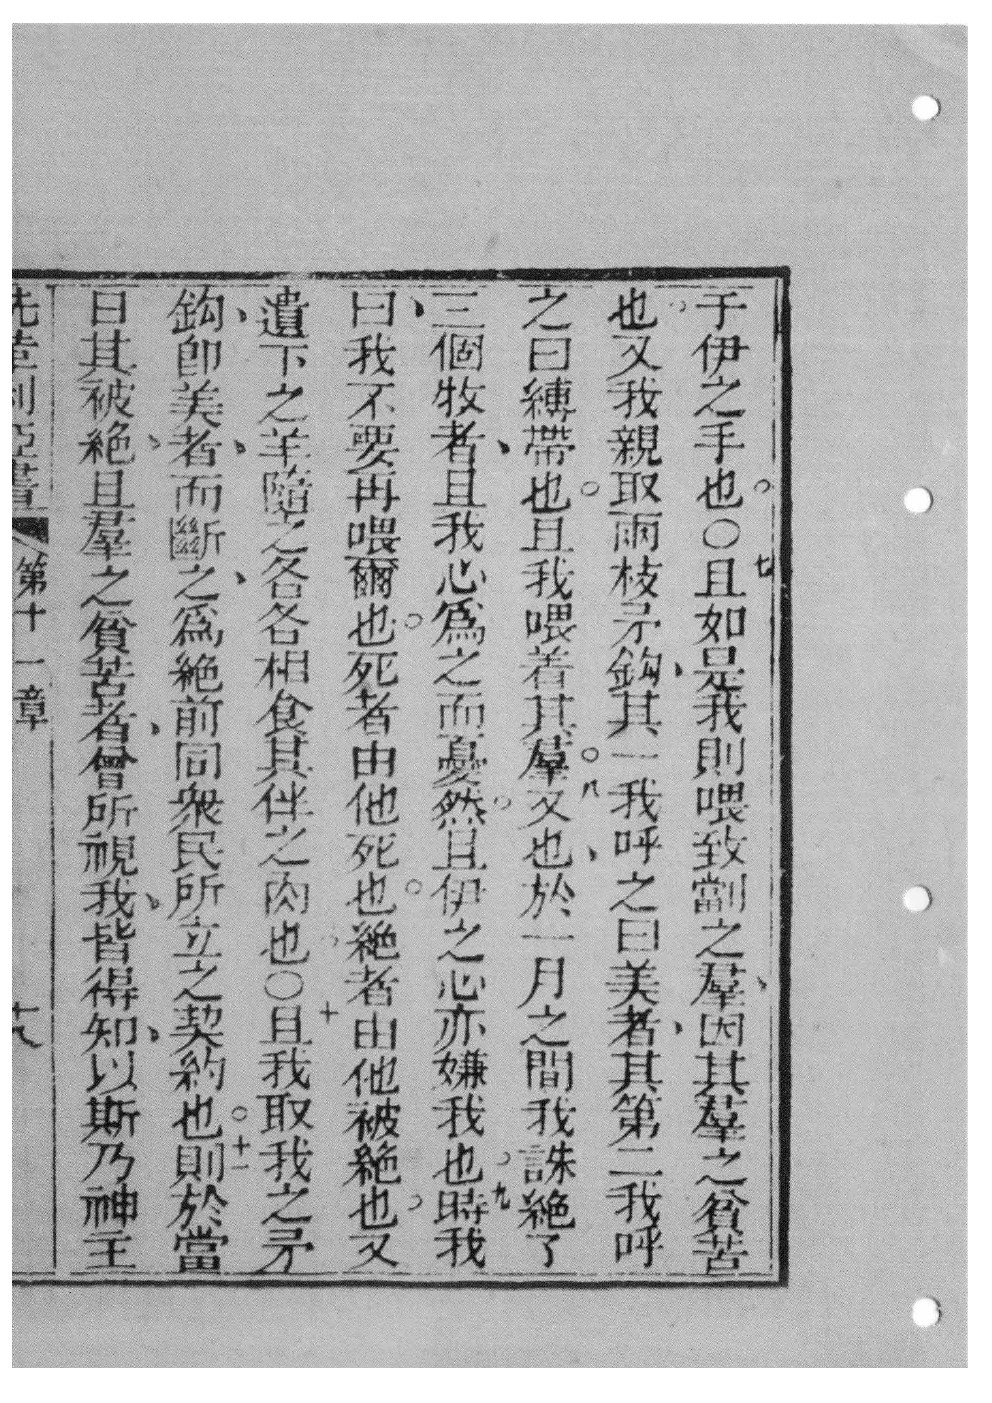 于伊之手也。○七且如是我則喂致劏之羣、因其羣之貧苦
也。又我親取兩枝矛鈎、其一我呼之曰美者、其第二我呼
之曰縛帶也。且我喂着其羣。八又也、於一月之間我誅絕了
三個牧者、且我心為之而憂然。且伊之心亦嫌我也。九時我
曰、我不要再喂爾也。死者由他死也。絕者由他被絕也。又
遺下之羊隨之各各相食其伴之肉也。○十且我取我之矛
鈎、即美者、而斷之、為絕前同衆民所立之契約也。十一則於當
日其被絕、且羣之貧苦者、曾所視我、皆得知、以斯乃神主
先達利亞書 第十一章 十八